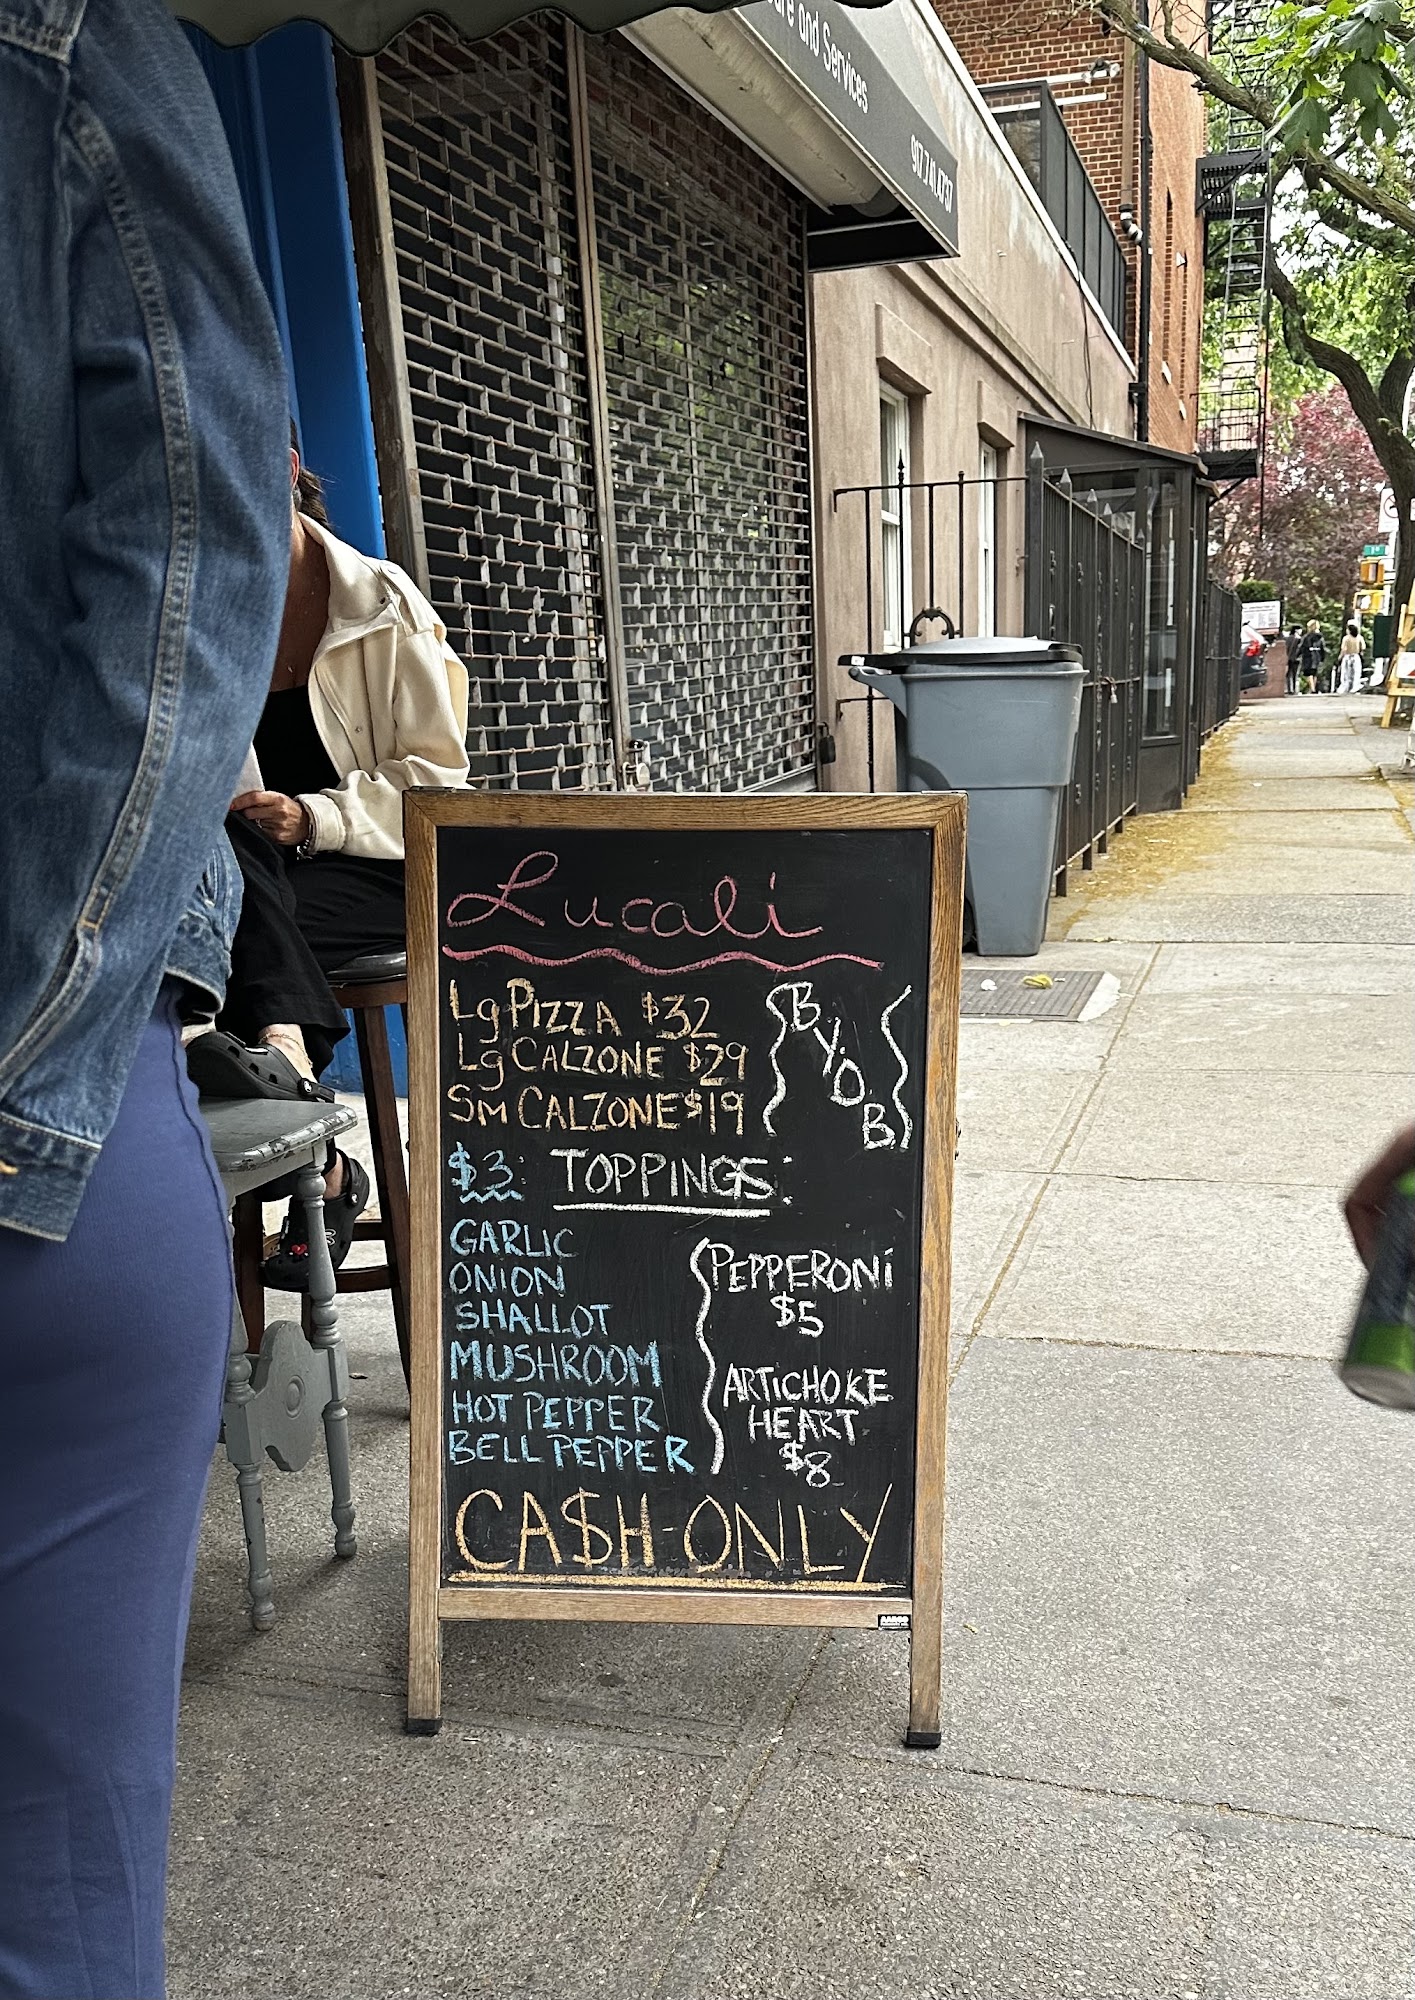 and Services
917.741.4737
Lucali
Lg PIZZA $32
Lg CALZONE $29
Sm CALZONE $19
B.Y.O.B
$3: TOPPINGS:
GARLIC
ONION
SHALLOT
MUSHROOM
HOT PEPPER
BELL PEPPER
PEPPERONi
$5
ARTiCHOKE
HEART
$8
CA$H ONLY